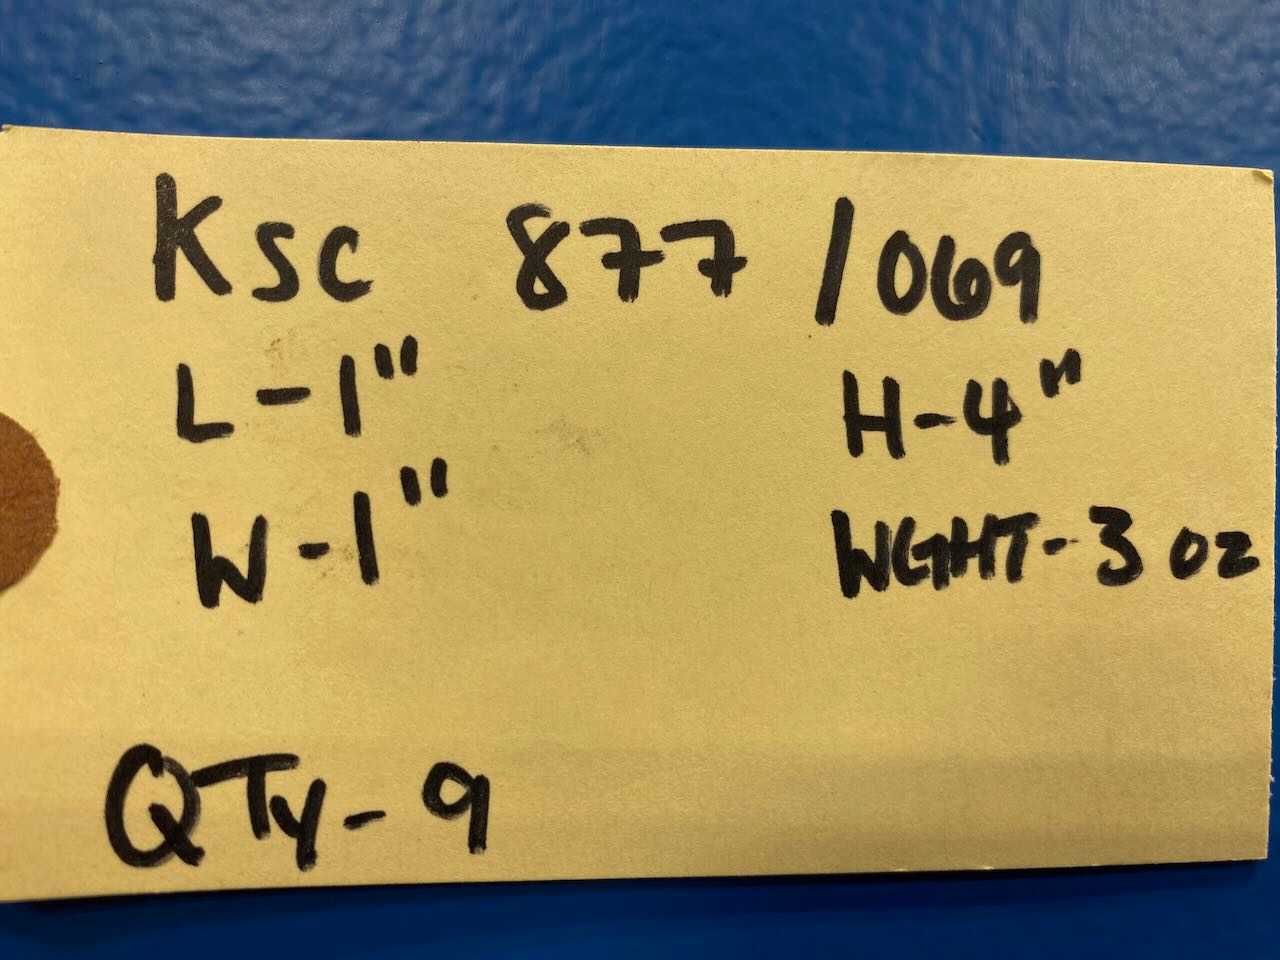 KSC 877 /069
L-1" H-4"
W-1" WGHT-3 OZ
QTY-9